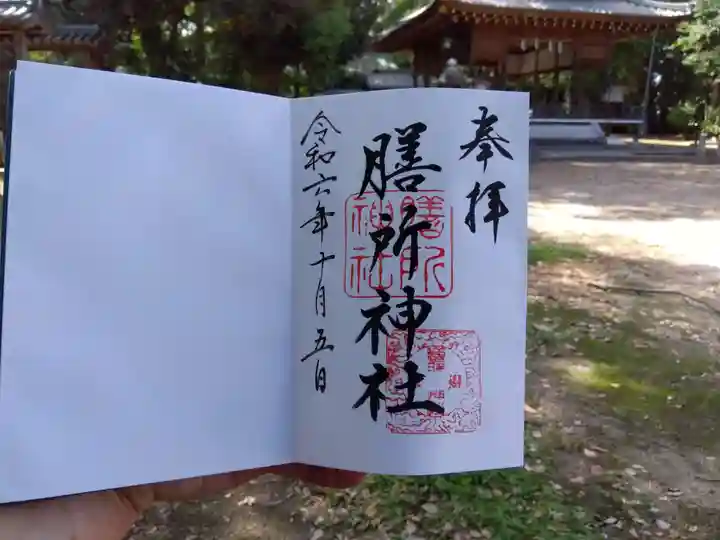 奉拝
膳所神社
膳所
神社
令和六年十月五日